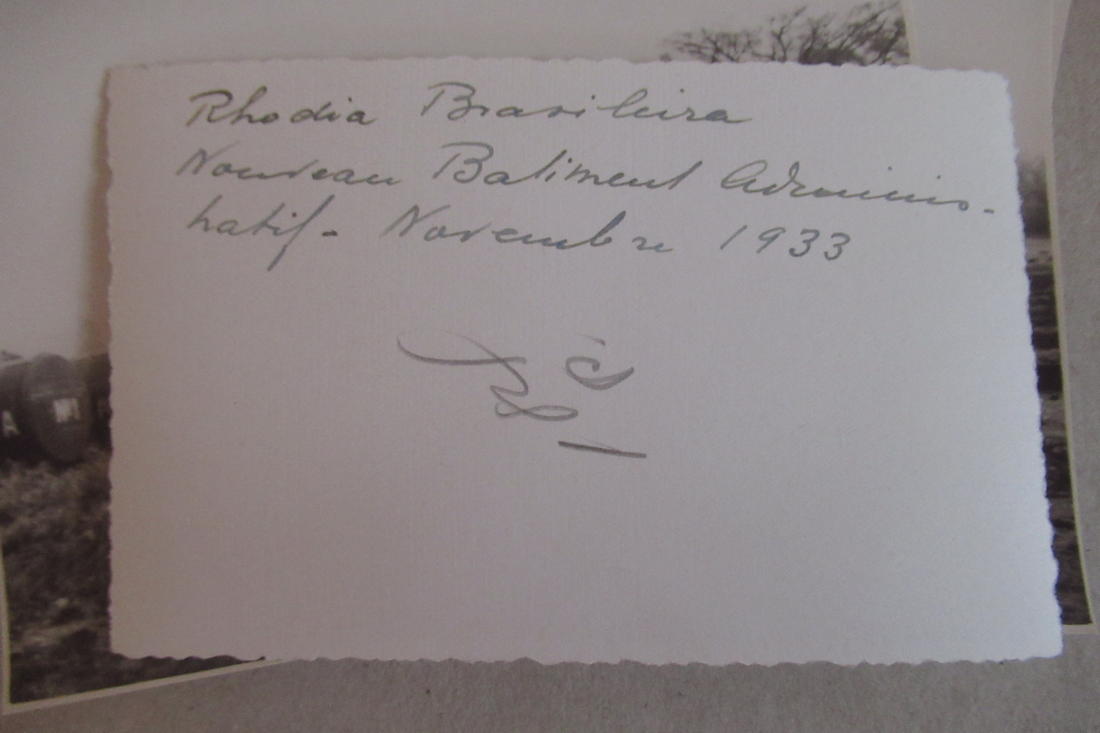 Rhodia Brasileira
Nouveau Batiment Adminis-
tratif. Novembre 1933